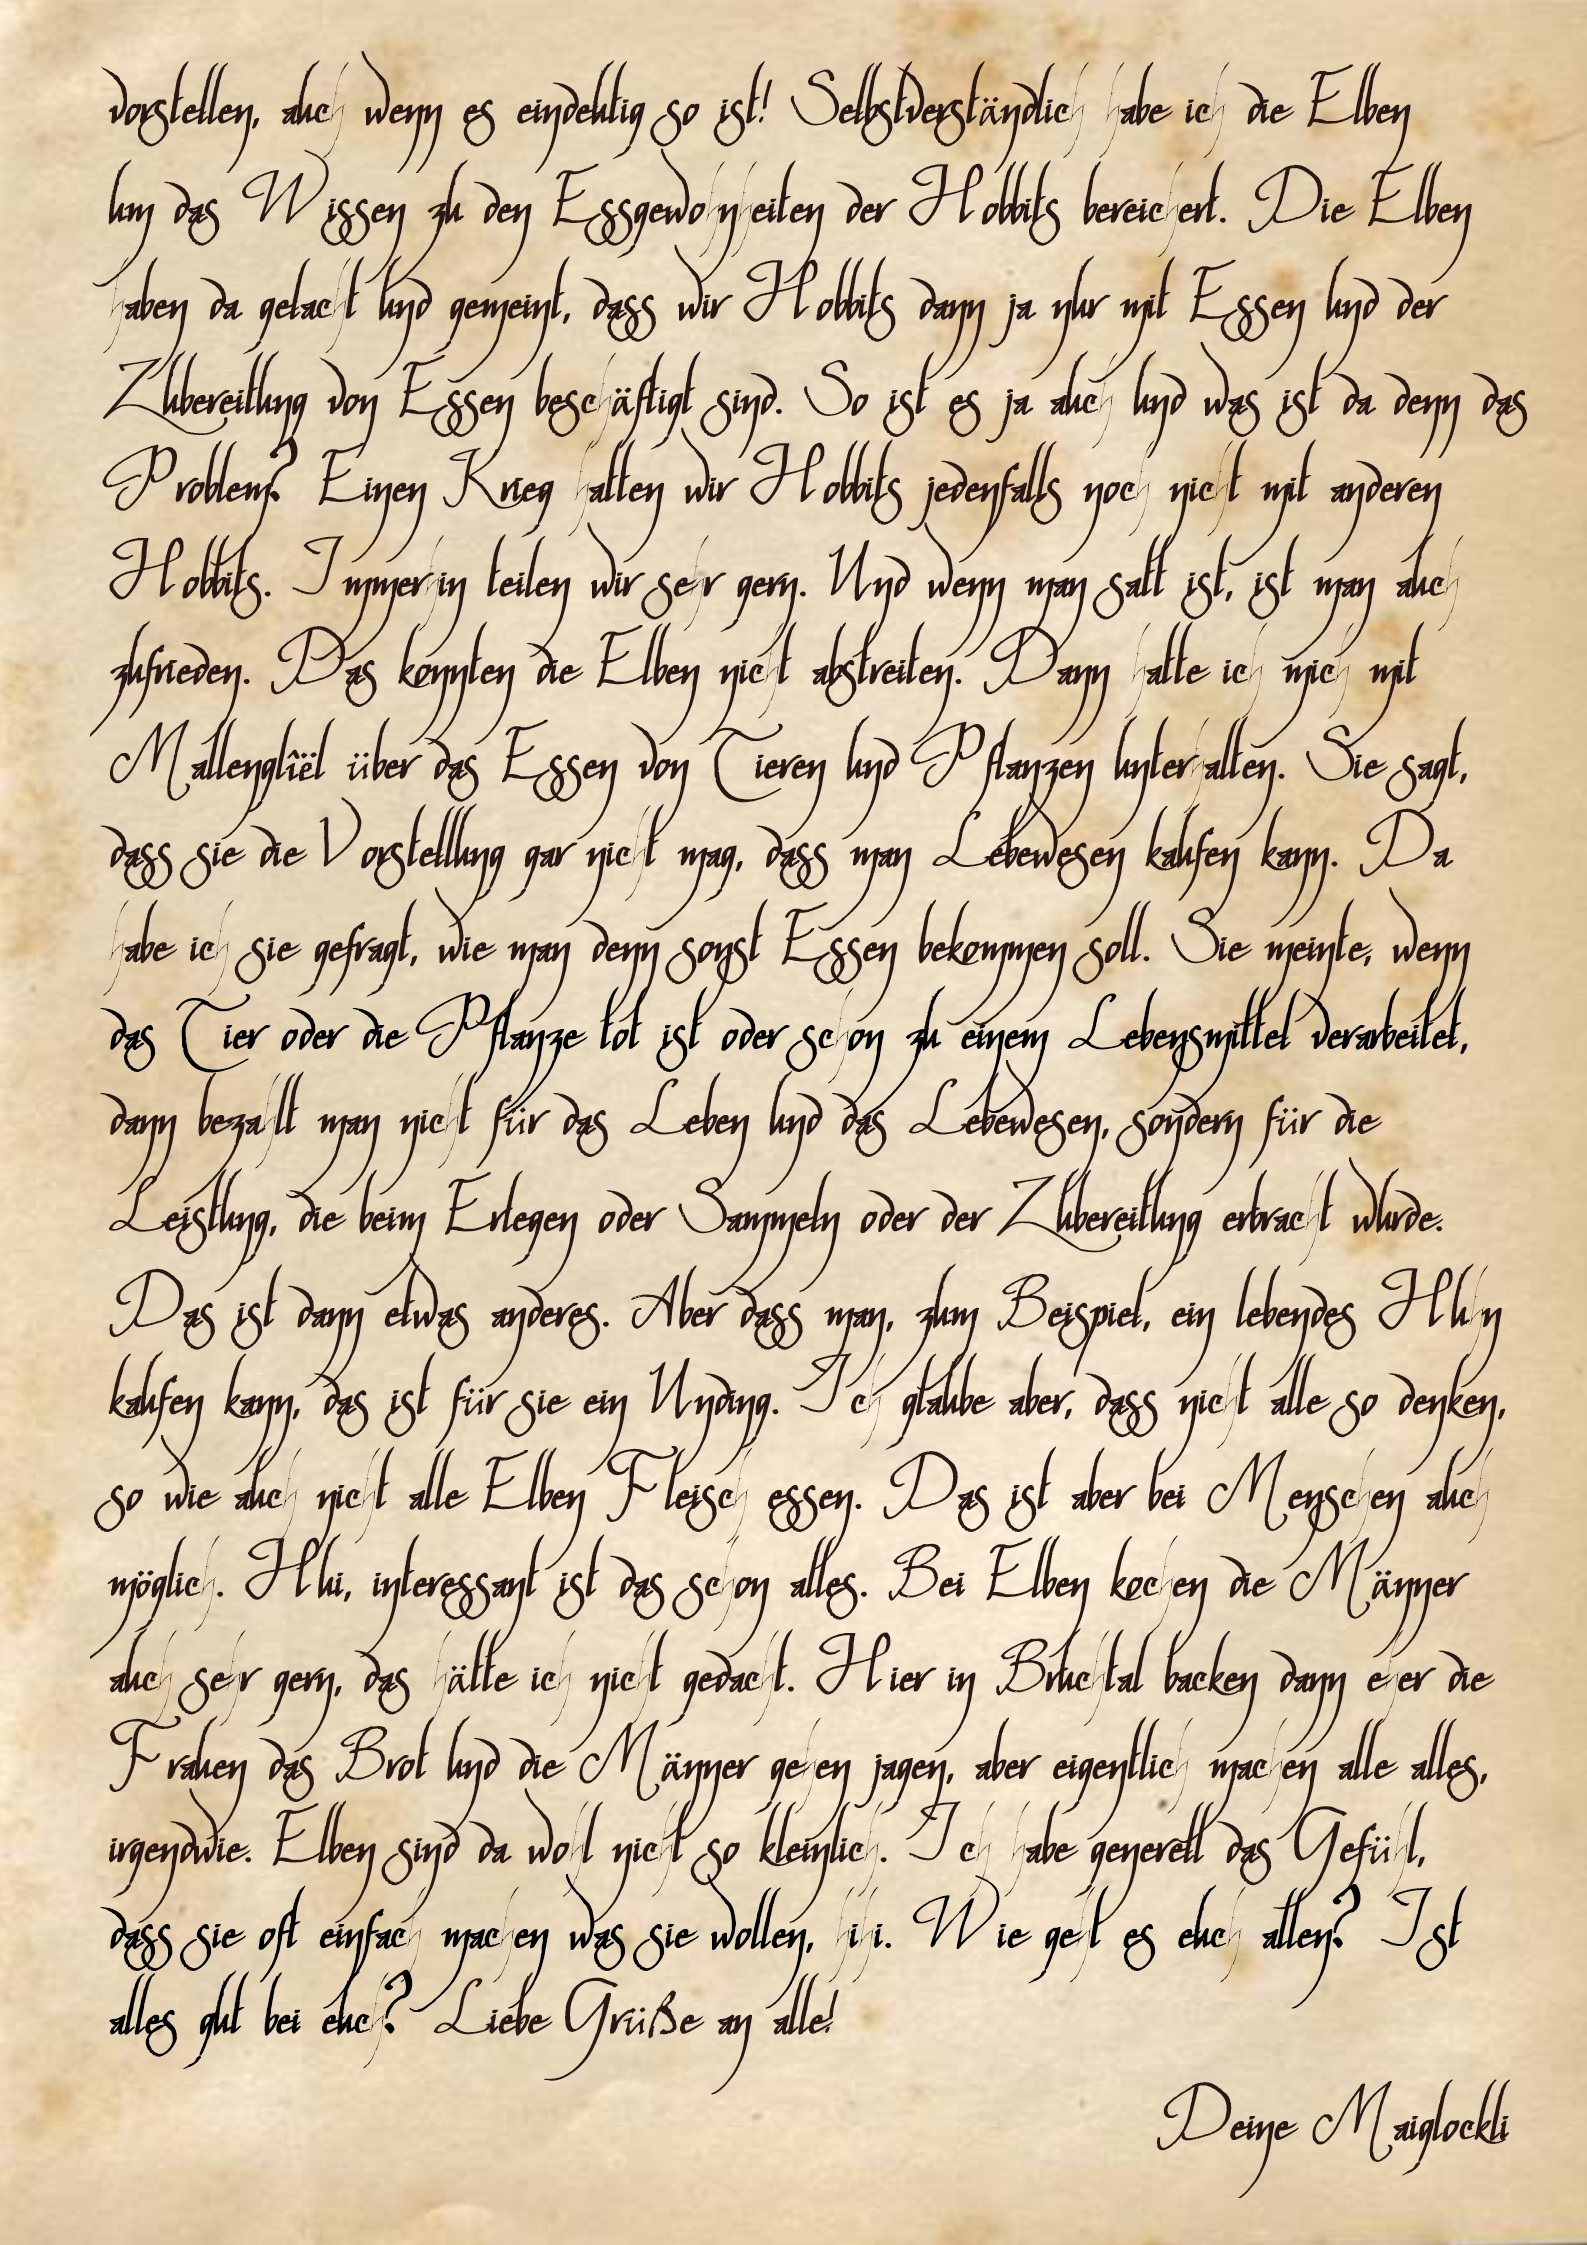 vorstellen, auch wenn es eindeutig so ist! Selbstverständlich habe ich die Elben
um das Wissen zu den Essgewohnheiten der Hobbits bereichert. Die Elben
haben da gelacht und gemeint, dass wir Hobbits dann ja nur mit Essen und der
Zubereitung von Essen beschäftigt sind. So ist es ja auch und was ist da denn das
Problem? Einen Krieg hatten wir Hobbits jedenfalls noch nicht mit anderen
Hobbits. Immerhin teilen wir sehr gern. Und wenn man satt ist, ist man auch
zufrieden. Das konnten die Elben nicht abstreiten. Dann hatte ich mich mit
Mallenglîël über das Essen von Tieren und Pflanzen unterhalten. Sie sagt,
dass sie die Vorstelllung gar nicht mag, dass man Lebewesen kaufen kann. Da
habe ich sie gefragt, wie man denn sonst Essen bekommen soll. Sie meinte, wenn
das Tier oder die Pflanze tot ist oder schon zu einem Lebensmittel verarbeitet,
dann bezahlt man nicht für das Leben und das Lebewesen, sondern für die
Leistung, die beim Erlegen oder Sammeln oder der Zubereitung erbracht wurde.
Das ist dann etwas anderes. Aber dass man, zum Beispiel, ein lebendes Huhn
kaufen kann, das ist für sie ein Unding. Ich glaube aber, dass nicht alle so denken,
so wie auch nicht alle Elben Fleisch essen. Das ist aber bei Menschen auch
möglich. Hui, interessant ist das schon alles. Bei Elben kochen die Männer
auch sehr gern, das hätte ich nicht gedacht. Hier in Bruchtal backen dann eher die
Frauen das Brot und die Männer gehen jagen, aber eigentlich machen alle alles,
irgendwie. Elben sind da wohl nicht so kleinlich. Ich habe generell das Gefühl,
dass sie oft einfach machen was sie wollen, hihi. Wie geht es euch allen? Ist
alles gut bei euch? Liebe Grüße an alle!
Deine Maiglöckli